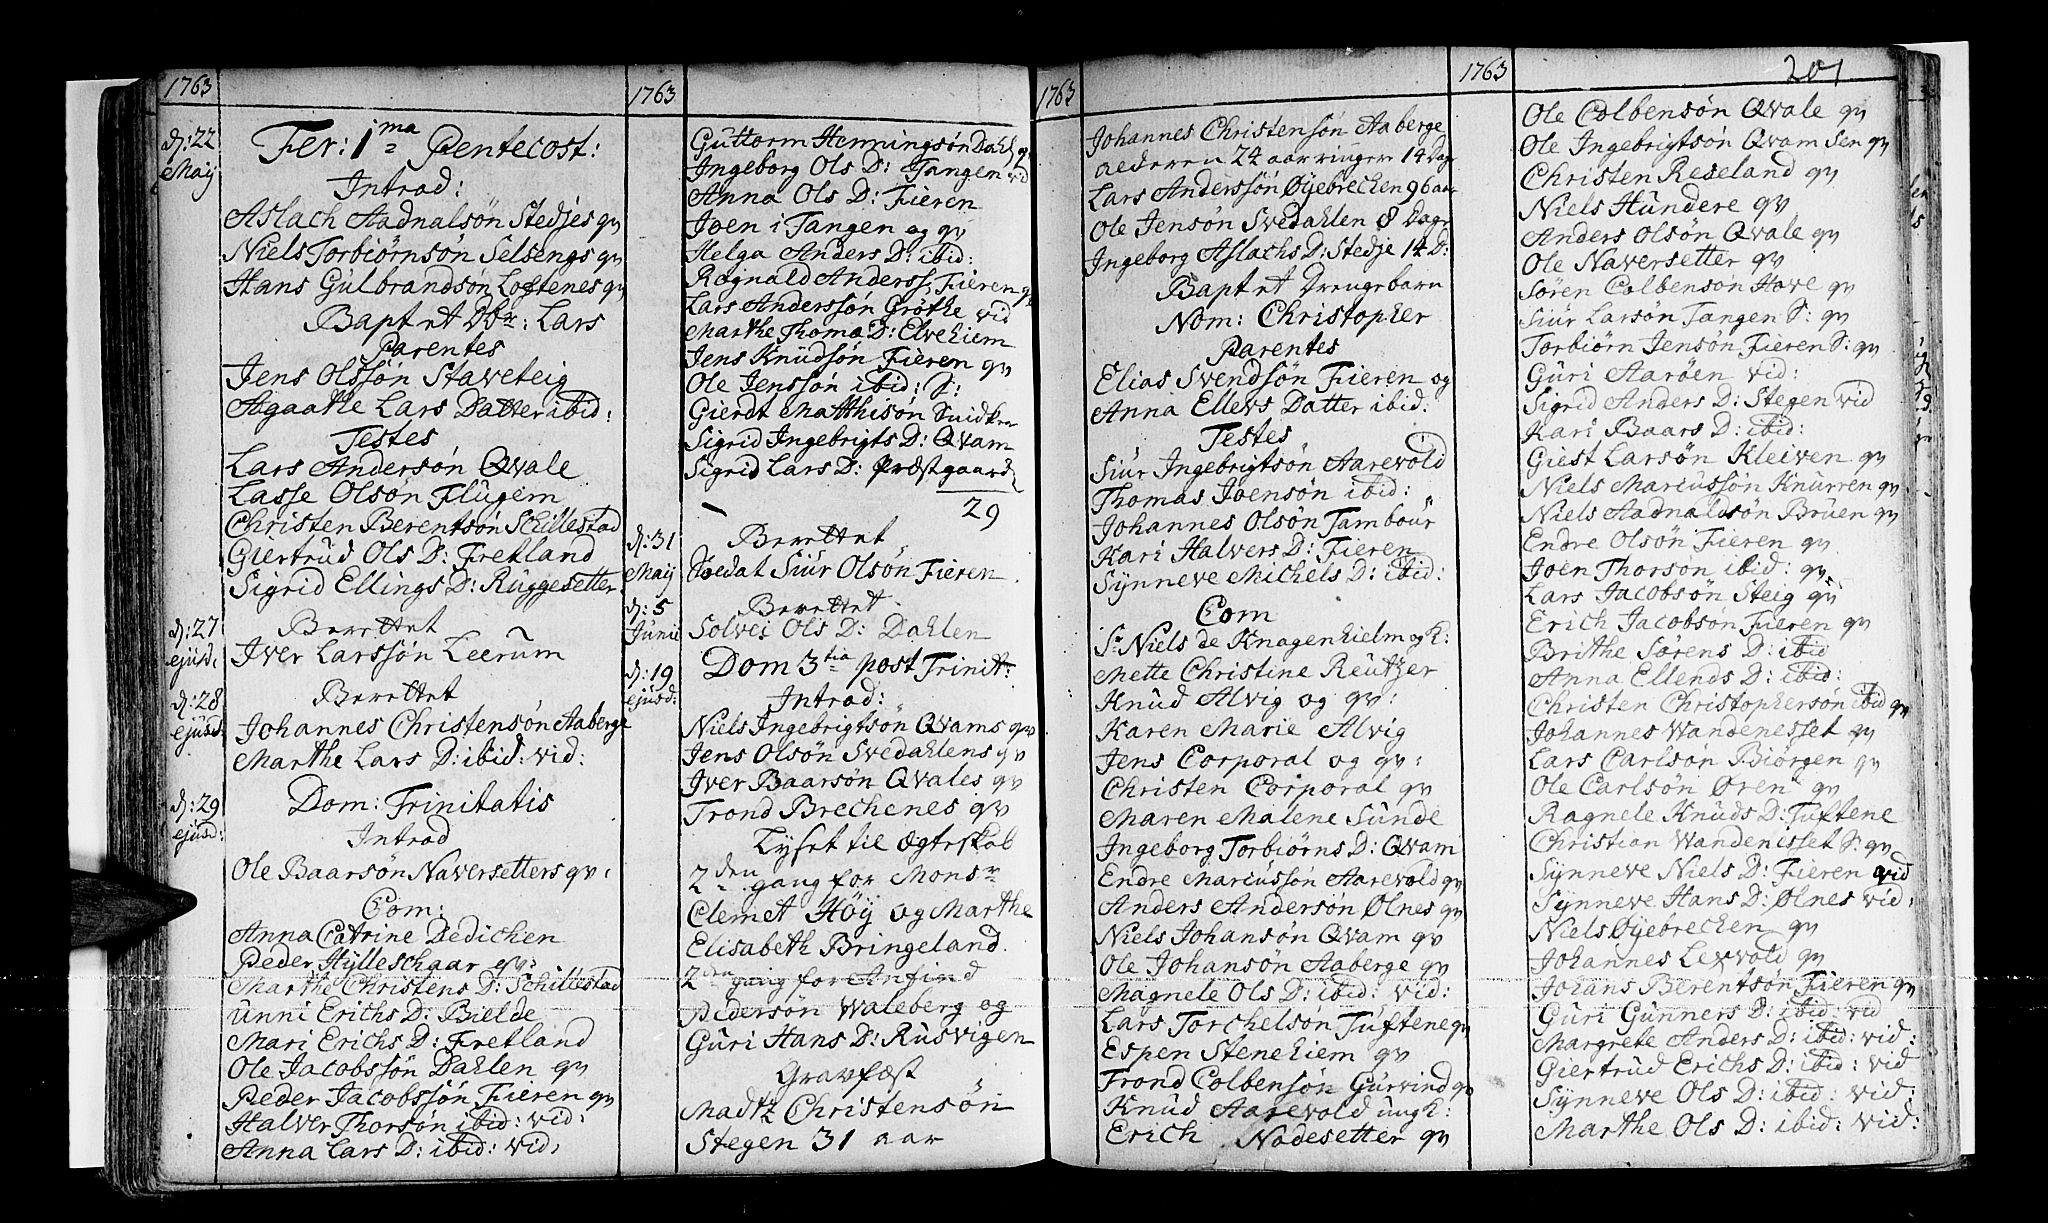 1763
d: 22
May
Fer: 1ma Pentecost:
Introd:
Aslach Aadnalsön Stedjes qv
Niels Torbiörnsön Selsengs qv
Hans Gulbrandsön Loftenes qv
Bapt et Dbr: Lars
Parentes
Jens Olssön Staveteig
Agaathe Lars Datter ibid:
Testes
Lars Andersön Qvale
Lasse Olsön Flugem
Christen Berentsön Schillestad
Giertrud Ols D: Fretland
Sigrid Ellings D: Ruggesetter
d: 27
ejusd:
Berettet
Iver Larssön Leerum
d: 28
ejusd:
Berettet
Johannes Christensön Aaberge
Marthe Lars D: ibid: vid:
d: 29
ejusd:
Dom: Trinitatis
Introd
Ole Baarsön Naversetters qv:
Com:
Anna Catrine Dedichen
Peder Hylleschaar qv:
Marthe Christens D: Schillestad
Unni Erichs D: Bielde
Mari Erichs D: Fretland
Ole Jacobssön Dahlen qv
Peder Jacobssön Fieren qv
Halver Thorsön ibid: vid:
Anna Lars D: ibid: vid:
1763
Guttorm Hemningsön Dahl qv
Ingeborg Ols D: Tangen vid
Anna Ols D: Fieren
Joen i Tangen og qv
Helga Anders D: ibid:
Ragnald Anderss. Fieren qv
Lars Anderssön Gröthe vid
Marthe Thoma D: Elvehiem
Jens Knudsön Fieren qv
Ole Jenssön ibid: S:
Gierdt Matthisön
Sigrid Ingebrigts D: Qvam
Sigrid Lars D: Præstgaard
29
d: 31
May
Berettet
Soldat Siur Olsön Fieren
d: 5
Junii
Berettet
Solvei Ols D: Dahlen
d: 19
ejusd:
Dom 3tia post Trinit:
Introd:
Niels Ingebrigtsön Qvams qv
Jens Olsön Svedahlens qv
Iver Baarsön Qvales qv
Trond Brechenes qv
Lyset til Ægteskab
2den gang for Monsr
Clemet Höy og Marthe
Elisabeth Bringeland.
2den gang for Anfind
Pedersön Waleberg og
Guri Hans D: Rusvigen
Gravfæst
Madtz Christensön
Stegen 31 aar
1763
Johannes Christensön Aaberge
aederen 24 aar ringer 14 Dage
Lars Anderssön Øyebrechen 96 aar
Ole Jensön Svedahlen 8 Dage
Ingeborg Aslachs D: Stedje 14 D:
Bapt et Drengebarn
Nom: Christopher
Parentes
Elias Svendsön Fieren og
Anna Ellers Datter ibid:
Testes
Siur Ingebrigtsön Aarevold
Thomas Joensön ibid:
Johannes Olsön Tambour
Kari Halvers D: Fieren
Synneve Michels D: ibid:
Com
Sr Niels de Knagenhielm og K:
Mette Christine Reutzer
Knud Alvig og qv:
Karen Marie Alvig
Jens Corporal og qv:
Christen Corporal qv
Maren Malene Sunde
Ingeborg Torbiörns D: Qvam
Endre Marcussön Aarevold qv
Anders Andersön Ølnes qv
Niels Johansön Qvam qv
Ole Johansön Aaberge qv
Magnele Ols D: ibid: vid:
Lars Torchelsön Tuftene qv
Espen Stenehiem qv
Trond Colbensön Gurvind qv
Knud Aarevold ung K:
Erich Nodesetter qv
1763
201
Ole Colbensön Qvale qv
Ole Ingebrigtsön Qvam Sen qv
Christen Reseland qv
Niels Hundere qv
Anders Olsön Qvale qv
Ole Naversetter qv
Sören Colbensön Hove qv
Siur Larsön Tangen S: qv
Torbiörn Jensön Fieren S: qv
Guri Aaröen vid:
Sigrid Anders D: Stegen vid
Kari Baars D: ibid:
Giest Larsön Kleiven qv
Niels Marcussön Knurren qv
Niels Aadnalssön Bruen qv
Endre Olsön Fieren qv
Joen Thorsön ibid: qv
Lars Jacobsön Steig qv
Erich Jacobsön Fieren qv
Brithe Sörens D: ibid
Anna Ellends D: ibid:
Christen Christophersön ibid qv
Johannes Wandenesset qv
Lars Carlsön Biörgen qv
Ole Carlsön Øren qv
Ragnele Knuds D: Tuftene
Christian Wandenisset S: qv
Synneve Niels D: Fieren vid
Synneve Hans D: Ølnes vid:
Niels Øyebrechen qv
Johannes Lexvold qv
Johans Berentsön Fieren qv
Guri Gunners D: ibid: vid
Margrete Anders D: ibid: vid:
Giertrud Erichs D: ibid: vid
Synneve Ols D: ibid: vid:
Marthe Ols D: ibid: vid: